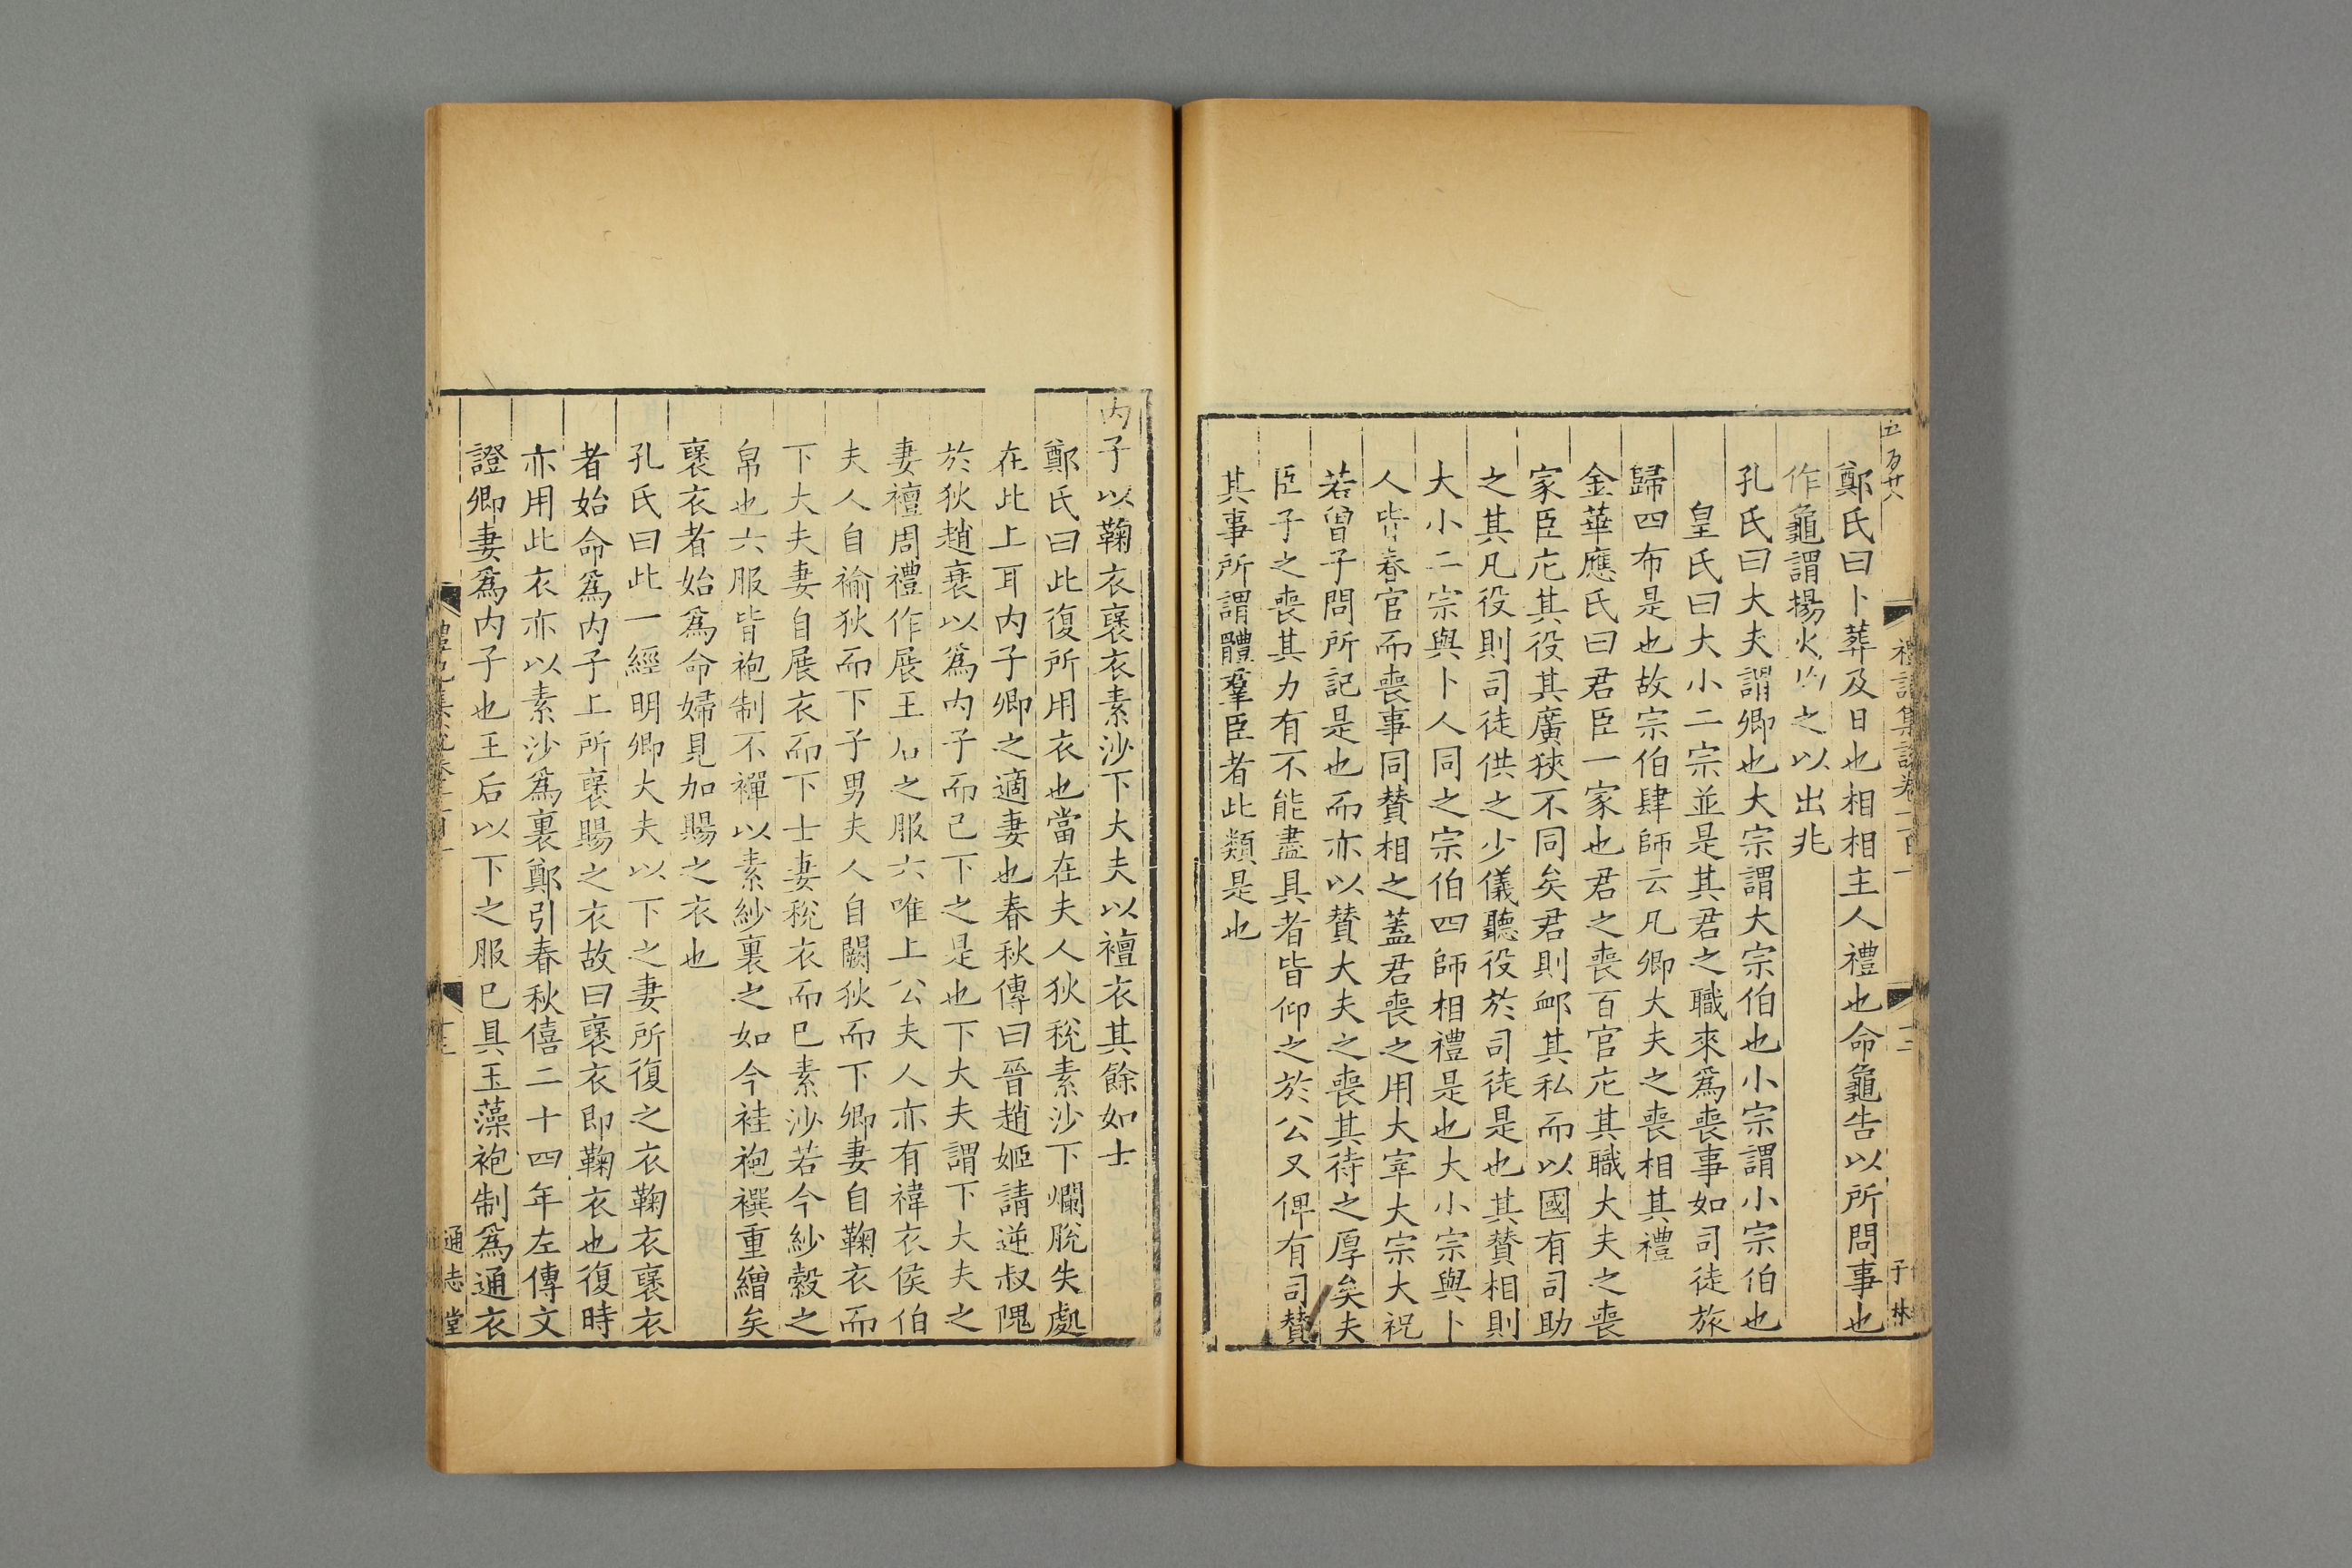 五百廿八
禮記集說卷一百一
十二
子
林
鄭氏曰卜葬及日也相相主人禮也命龜告以所問事也
作龜謂揚火灼之以出兆
孔氏曰大夫謂卿也大宗謂大宗伯也小宗謂小宗伯也
皇氏曰大小二宗並是其君之職來爲喪事如司徒旅
歸四布是也故宗伯肆師云凡卿大夫之喪相其禮
金華應氏曰君臣一家也君之喪百官庀其職大夫之喪
家臣庀其役其廣狹不同矣君則衈其私而以國有司助
之其凡役則司徒供之少儀聽役於司徒是也其贊相則
大小二宗與卜人同之宗伯四師相禮是也大小宗與卜
人皆春官而喪事同贊相之蓋君喪之用大宰大宗大祝
若曾子問所記是也而亦以贊大夫之喪其待之厚矣夫
臣子之喪其力有不能盡具者皆仰之於公又俾有司贊
其事所謂體羣臣者此類是也
内子以鞠衣襃衣素沙下大夫以襢衣其餘如士
鄭氏曰此復所用衣也當在夫人狄稅素沙下爛脫失處
在此上耳内子卿之適妻也春秋傳曰晉趙姬請逆叔隗
於狄趙衰以爲内子而己下之是也下大夫謂下大夫之
妻襢周禮作展王后之服六唯上公夫人亦有褘衣侯伯
夫人自褕狄而下子男夫人自闕狄而下卿妻自鞠衣而
下大夫妻自展衣而下士妻稅衣而已素沙若今紗縠之
帛也六服皆袍制不襌以素紗裏之如今袿袍襈重繒矣
襃衣者始爲命婦見加賜之衣也
孔氏曰此一經明卿大夫以下之妻所復之衣鞠衣襃衣
者始命爲内子上所襃賜之衣故曰襃衣即鞠衣也復時
亦用此衣亦以素沙爲裏鄭引春秋僖二十四年左傳文
證卿妻爲内子也王后以下之服已具玉藻袍制爲通衣
禮記集說卷一百一
十三
通志堂